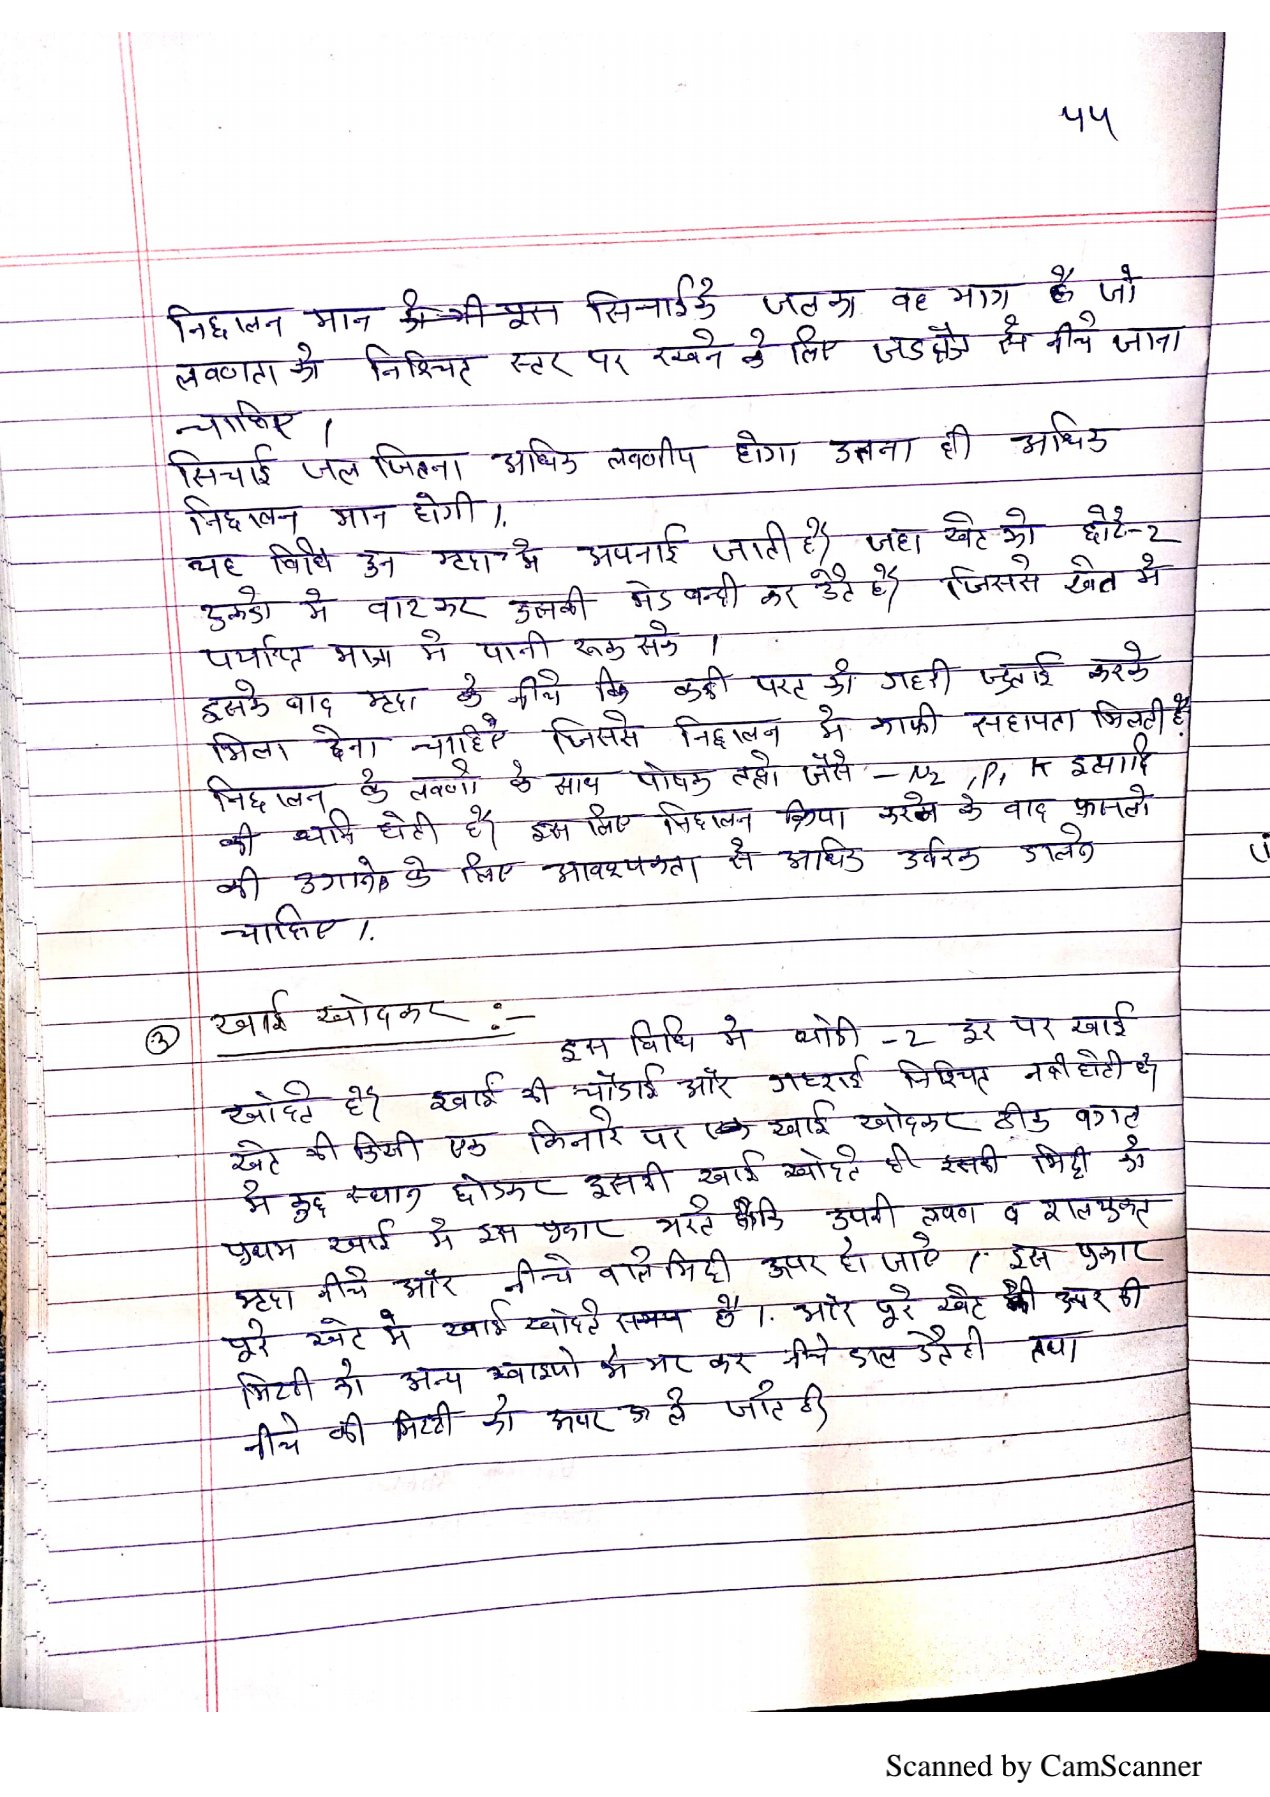 ५५
निछालन मान सिचाई के जल का वह भाग है जो
लवणता को निश्चित स्तर पर रखने के लिए जडक्षेत्र से नीचे जाना
चाहिए ।
सिचाई जल जितना अधिक लवणीय होगा उतना ही अधिक
निछालन मान होगी ।
यह विधि उन मृदा मे अपनाई जाती है जहा खेट को छोटे-2
टुकडो मे बाट कर उसकी मेडबन्दी कर देते है जिससे खेत मे
पर्याप्त मात्रा मे पानी रूक सके ।
इसके बाद मृदा के नीचे कि कडी परट की गहरी जुताई करके
मिला देना चाहिए जिससे निछालन मे काफी सहायता मिलती है
निछालन के लवणो के साथ पोषक तत्वो जैसे - N2, P, K इत्यादि
की क्षति होती है इस लिए निछालन क्रिया करने के बाद फसलो
की उगाने के लिए आवश्यकता से अधिक उर्वरक डालने
चाहिए ।
③ खाई खोदकर :-
इस विधि मे थोडी -2 दूर पर खाई
खोदते है खाई की चौडाई और गहराई निश्चित नही होती है
खेट की किसी एक किनारे पर एक खाई खोदकर ठीक बगल
मे कुछ स्थान छोडकर दुसरी खाई खोदते ही इसकी मिट्टी को
प्रथम खाई मे इस प्रकार भरते है कि उपरी लवण व
मृदा नीचे और नीचे वाले मिट्टी ऊपर हो जाए । इस प्रकार
पूरे खेट मे खाई खोदते समय है । और पूरे खेट की उपर की
मिटटी को अन्य खाइयो मे भर कर नीचे डाल देते ही तथा
नीचे की मिटटी को ऊपर ले जाते है
Scanned by CamScanner